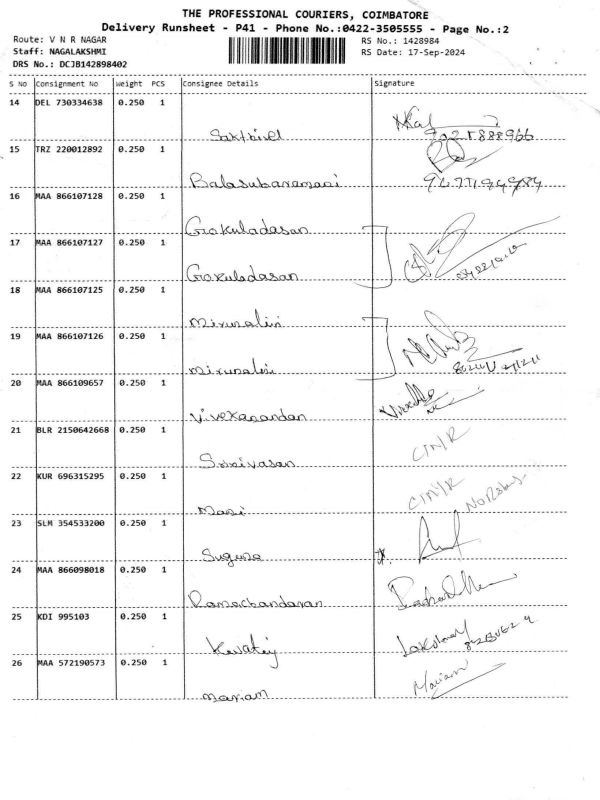 THE PROFESSIONAL COURIERS, COIMBATORE
Delivery Runsheet - P41 - Phone No.:0422-3505555 - Page No.:2
Route: V N R NAGAR RS No.: 1428984
Staff: NAGALAKSHMI RS Date: 17-Sep-2024
DRS No.: DCJB142898402
S No Consignment No Weight PCS Consignee Details Signature
14 DEL 730334638 0.250 1
Sakthivel
15 TRZ 220012892 0.250 1
Balasubaramani
16 MAA 866107128 0.250 1
Gokuladasan
17 MAA 866107127 0.250 1
Gokuladasan
18 MAA 866107125 0.250 1
Mirunalini
19 MAA 866107126 0.250 1
Mirunalini
20 MAA 866109657 0.250 1
Vivekanandan
21 BLR 2150642668 0.250 1
Srinivasan
22 KUR 696315295 0.250 1
Mani
23 SLM 354533200 0.250 1
Suguna
24 MAA 866098018 0.250 1
Ramachandaran
25 KDI 995103 0.250 1
26 MAA 572190573 0.250 1 Mariam
Mariam